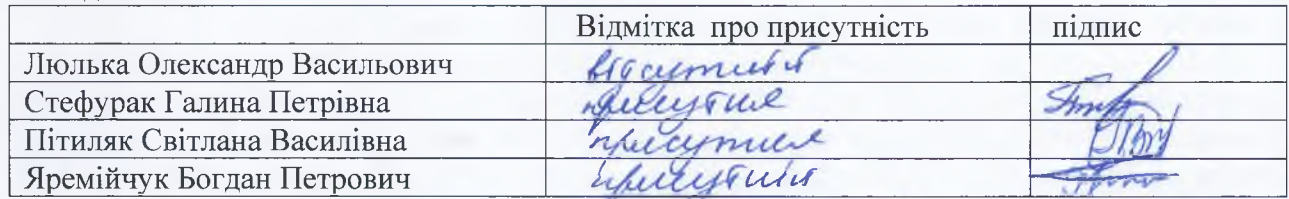 Відмітка про присутність підпис
Люлька Олександр Васильович відсутній
Стефурак Галина Петрівна присутня
Пітиляк Світлана Василівна присутня
Яремійчук Богдан Петрович присутній